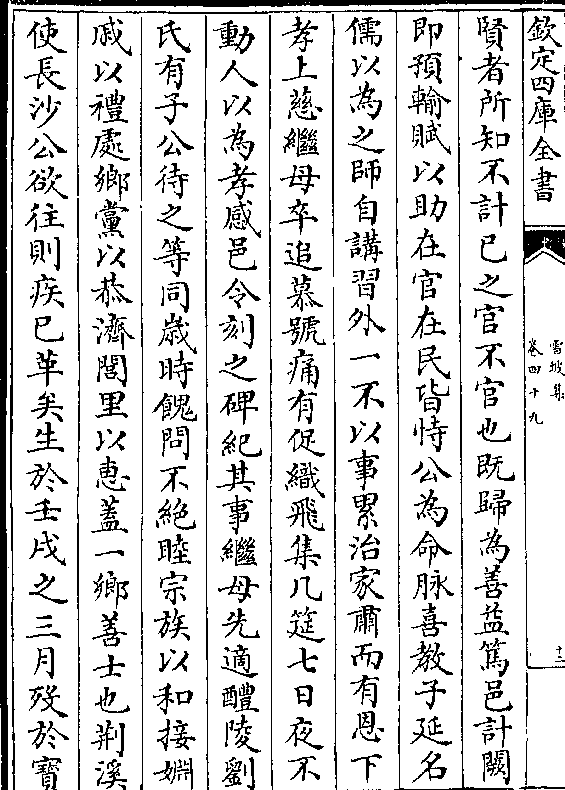 欽定四庫全書
雪坡集
卷四十九
十二
賢者所知不計已之官不官也既歸為善益篤邑計闕
即預輸賦以助在官在民皆恃公為命脉喜教子延名
儒以為之師自講習外一不以事累治家肅而有恩下
孝上慈繼母卒追慕號痛有促織飛集几筵七日夜不
動人以為孝感邑令刻之碑紀其事繼母先適醴陵劉
氏有子公待之等同歳時餽問不絶睦宗族以和接婣
戚以禮處鄉黨以恭濟閭里以惠蓋一鄉善士也荆溪
使長沙公欲往則疾已革矣生於壬戌之三月歿於寶